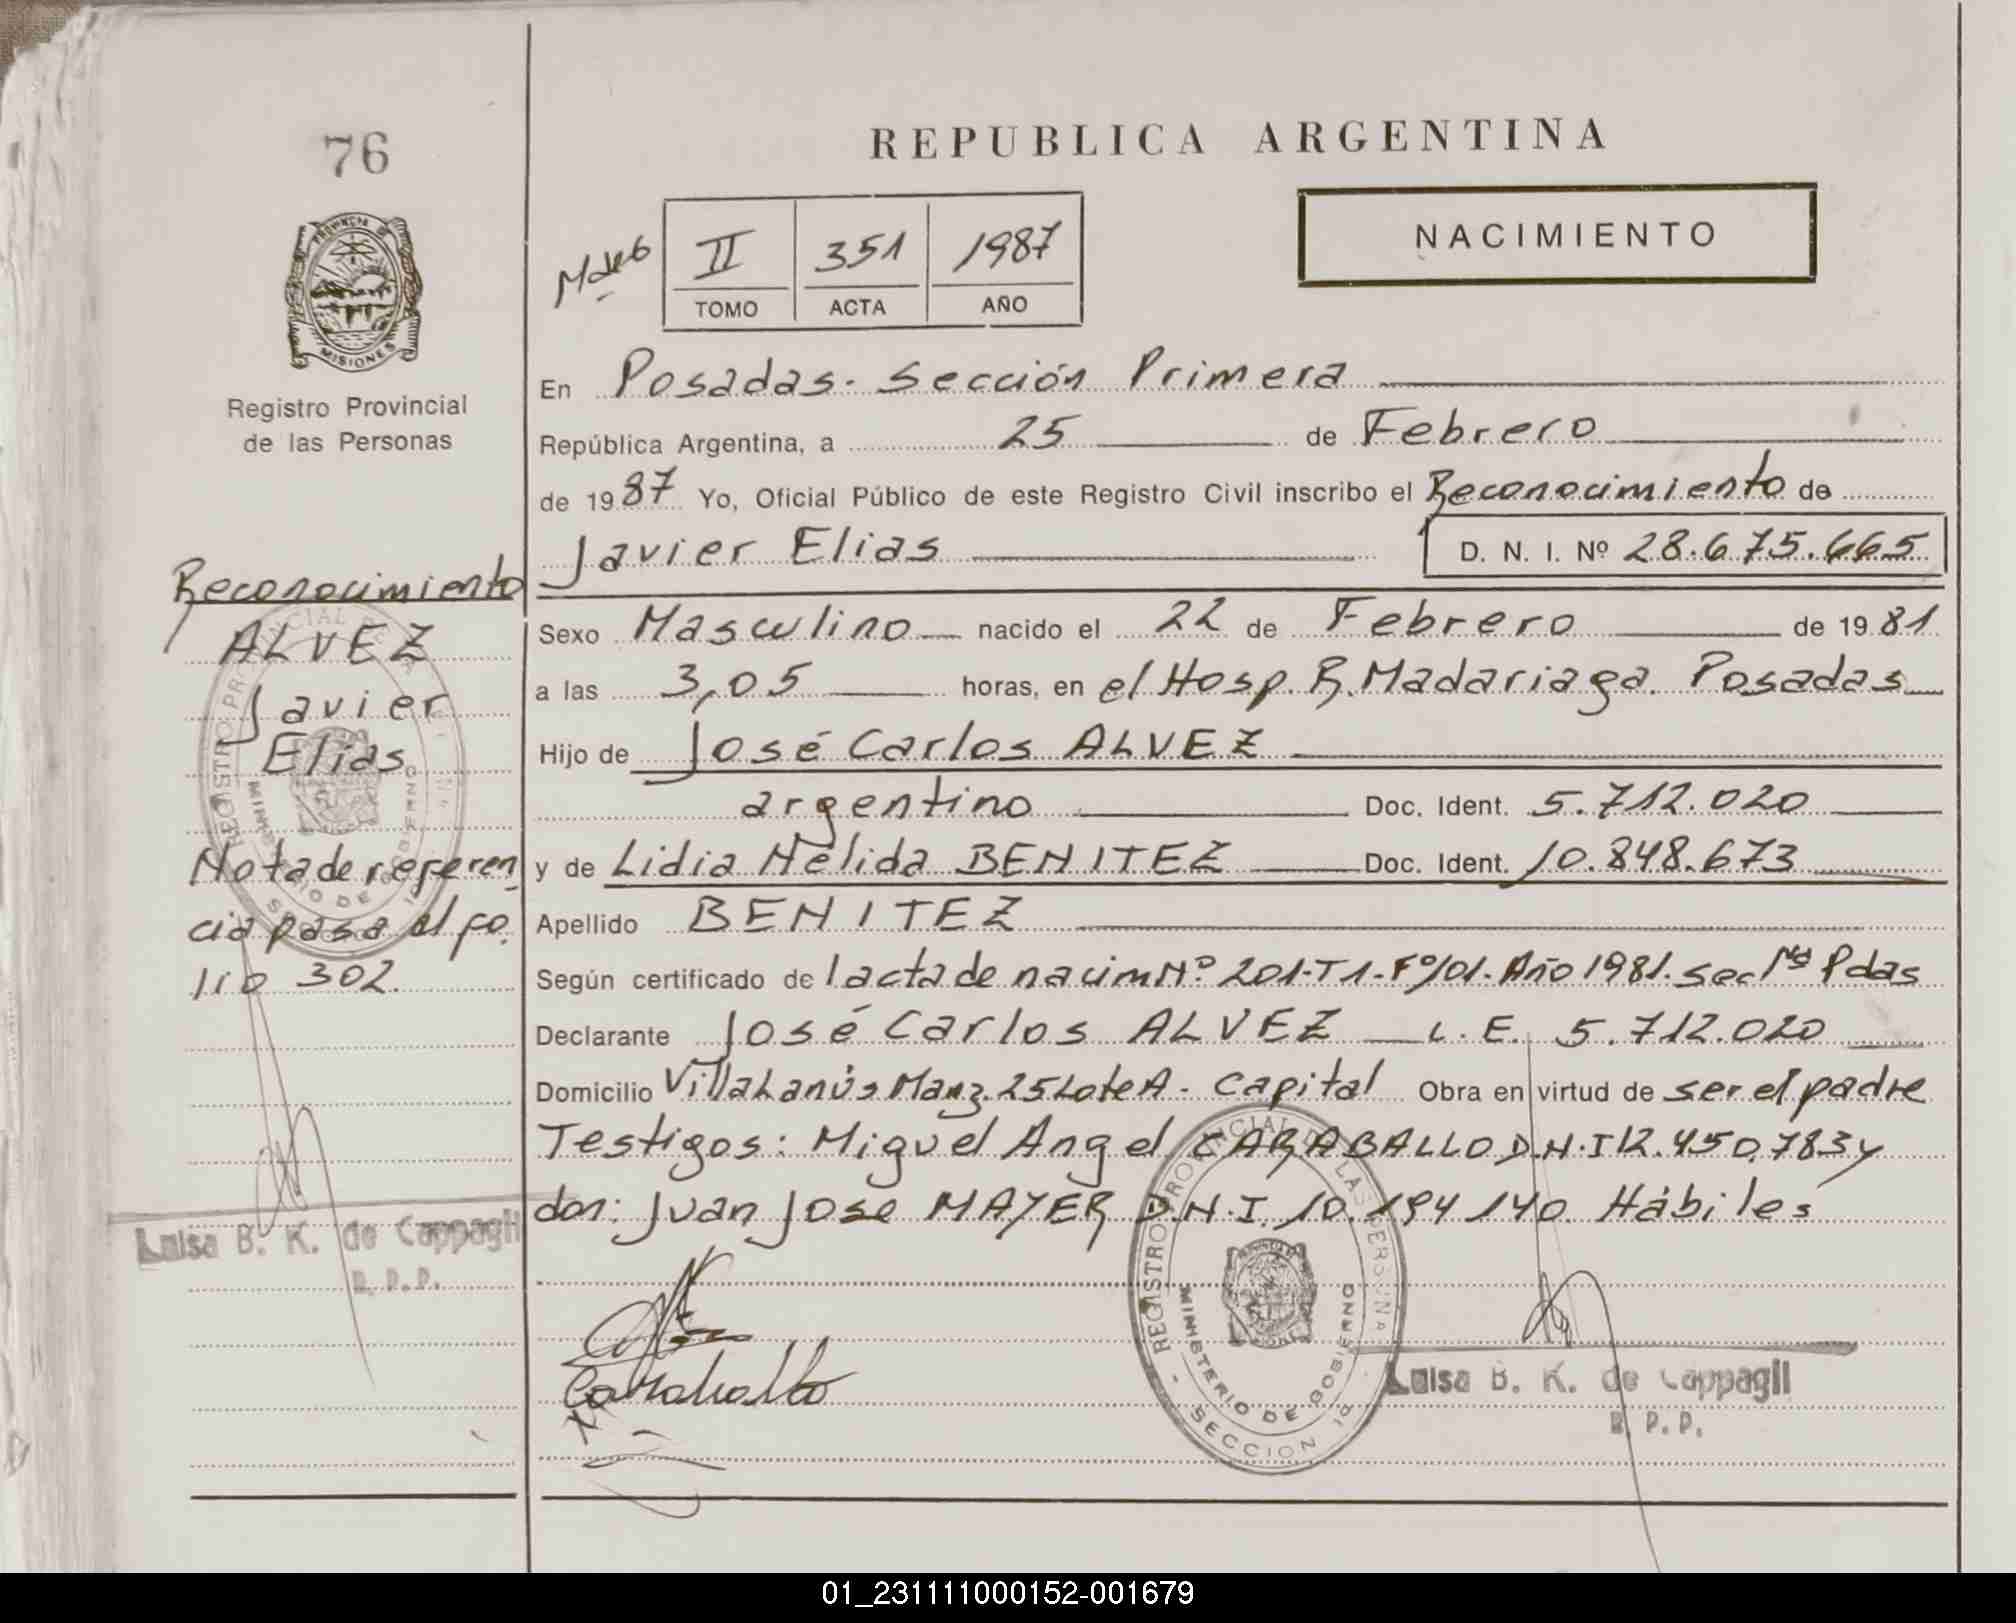 76
REPUBLICA ARGENTINA
NACIMIENTO
II 351 1987
TOMO ACTA AÑO
PROVINCIA DE
MISIONES
Registro Provincial
de las Personas
En Posadas. Sección Primera
República Argentina, a 25 de Febrero
de 1987 Yo, Oficial Público de este Registro Civil inscribo el Reconocimiento de
Javier Elias D. N. I. Nº 28.675.665
Reconocimiento
ALVEZ
Javier
Elias
Nota de referen
cia pasa al fo.
lio 302.
Luisa B. K. de Cappagli
Sexo Masculino nacido el 22 de Febrero de 1981
a las 3,05 horas, en el Hosp. R. Madariaga. Posadas
Hijo de José Carlos ALVEZ
argentino Doc. Ident. 5.712.020
y de Lidia Nélida BENITEZ Doc. Ident. 10.848.673
Apellido BENITEZ
Según certificado de l acta de nacim Nº 201-T1-Fº101. Año 1981. Sec 1ra Pdas
Declarante José Carlos ALVEZ L. E. 5.712.020
Domicilio Villa Lanús Manz. 25 Lote A - Capital Obra en virtud de ser el padre
Testigos: Miguel Angel CARABALLO D.N.I 12.450.783 y
don: Juan Jose MAYER D.N.I. 10.194 140. Hábiles
Caraballo
REGISTRO PROVINCIAL DE LAS PERSONAS
MINISTERIO DE GOBIERNO
SECCION
Luisa B. K. de Cappagli
01_231111000152-001679